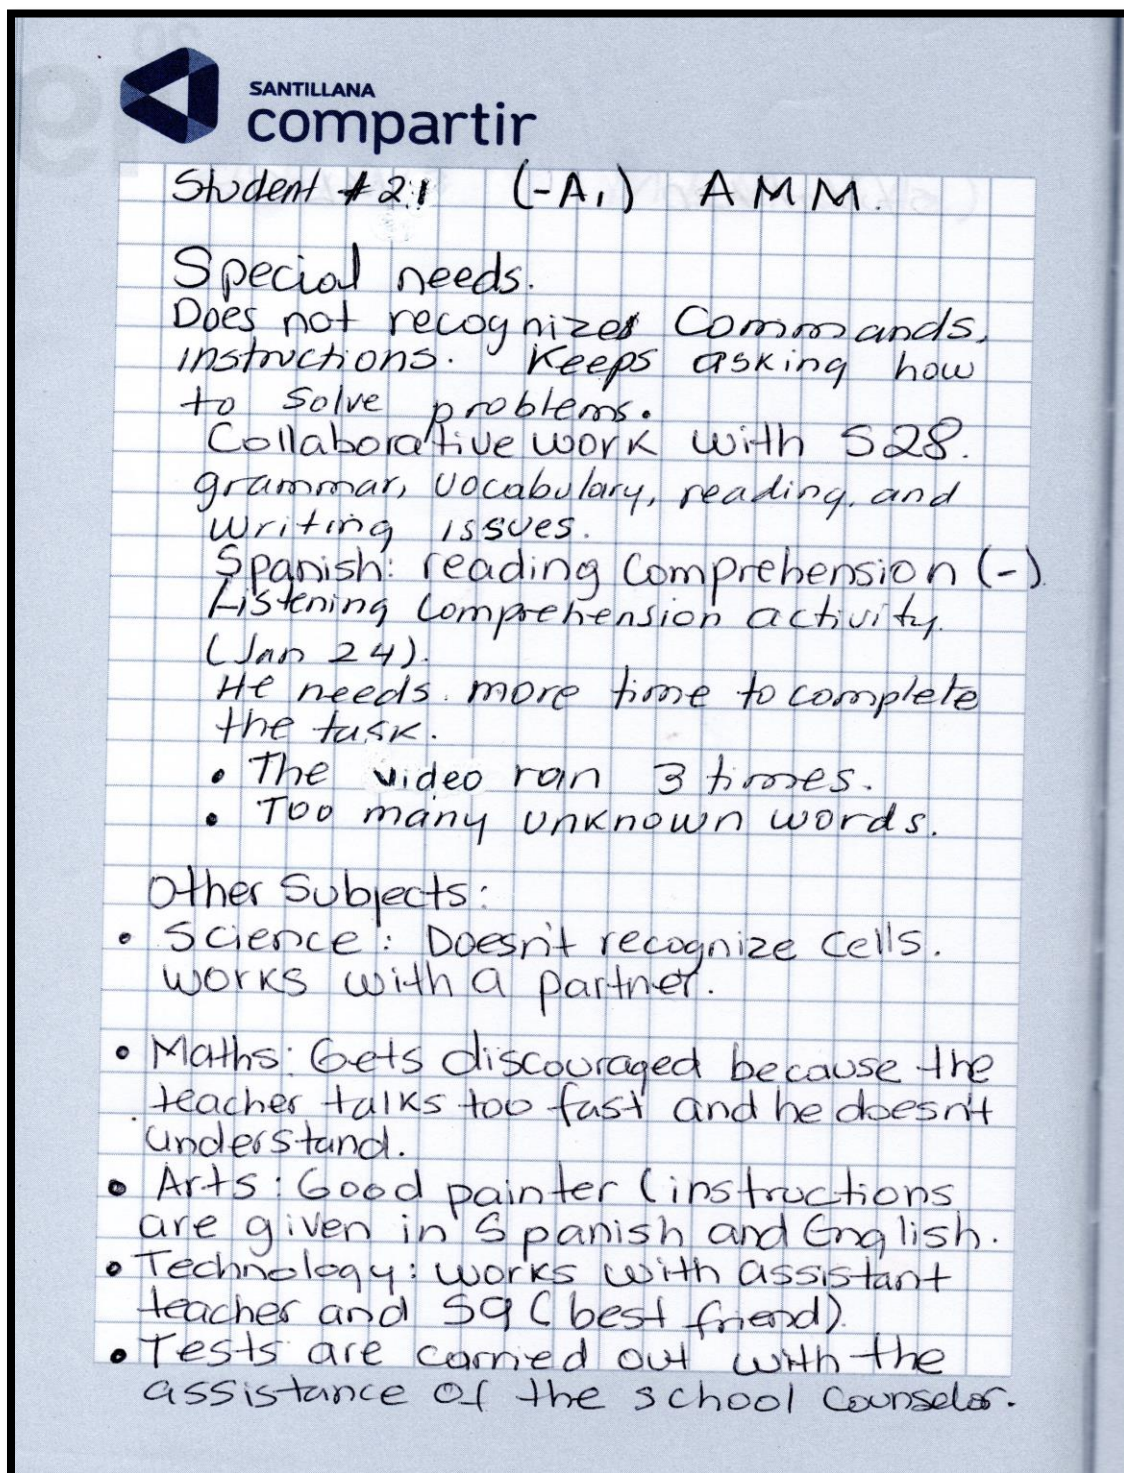 SANTILLANA
compartir
Student #21 (-A1) AMM.
Special needs.
Does not recognizes Commands,
instructions. Keeps asking how
to solve problems.
Collaborative work with S28.
grammar, vocabulary, reading, and
writing issues.
Spanish: reading comprehension (-).
Listening comprehension activity.
(Jan 24).
He needs more time to complete
the task.
• The video ran 3 times.
• Too many unknown words.
Other Subjects:
• Science: Doesn't recognize cells.
works with a partner.
• Maths: Gets discouraged because the
teacher talks too fast and he doesn't
understand.
• Arts: Good painter (instructions
are given in Spanish and English.
• Technology: works with assistant
teacher and S9 (best friend).
• Tests are carried out with the
assistance of the school counselor.